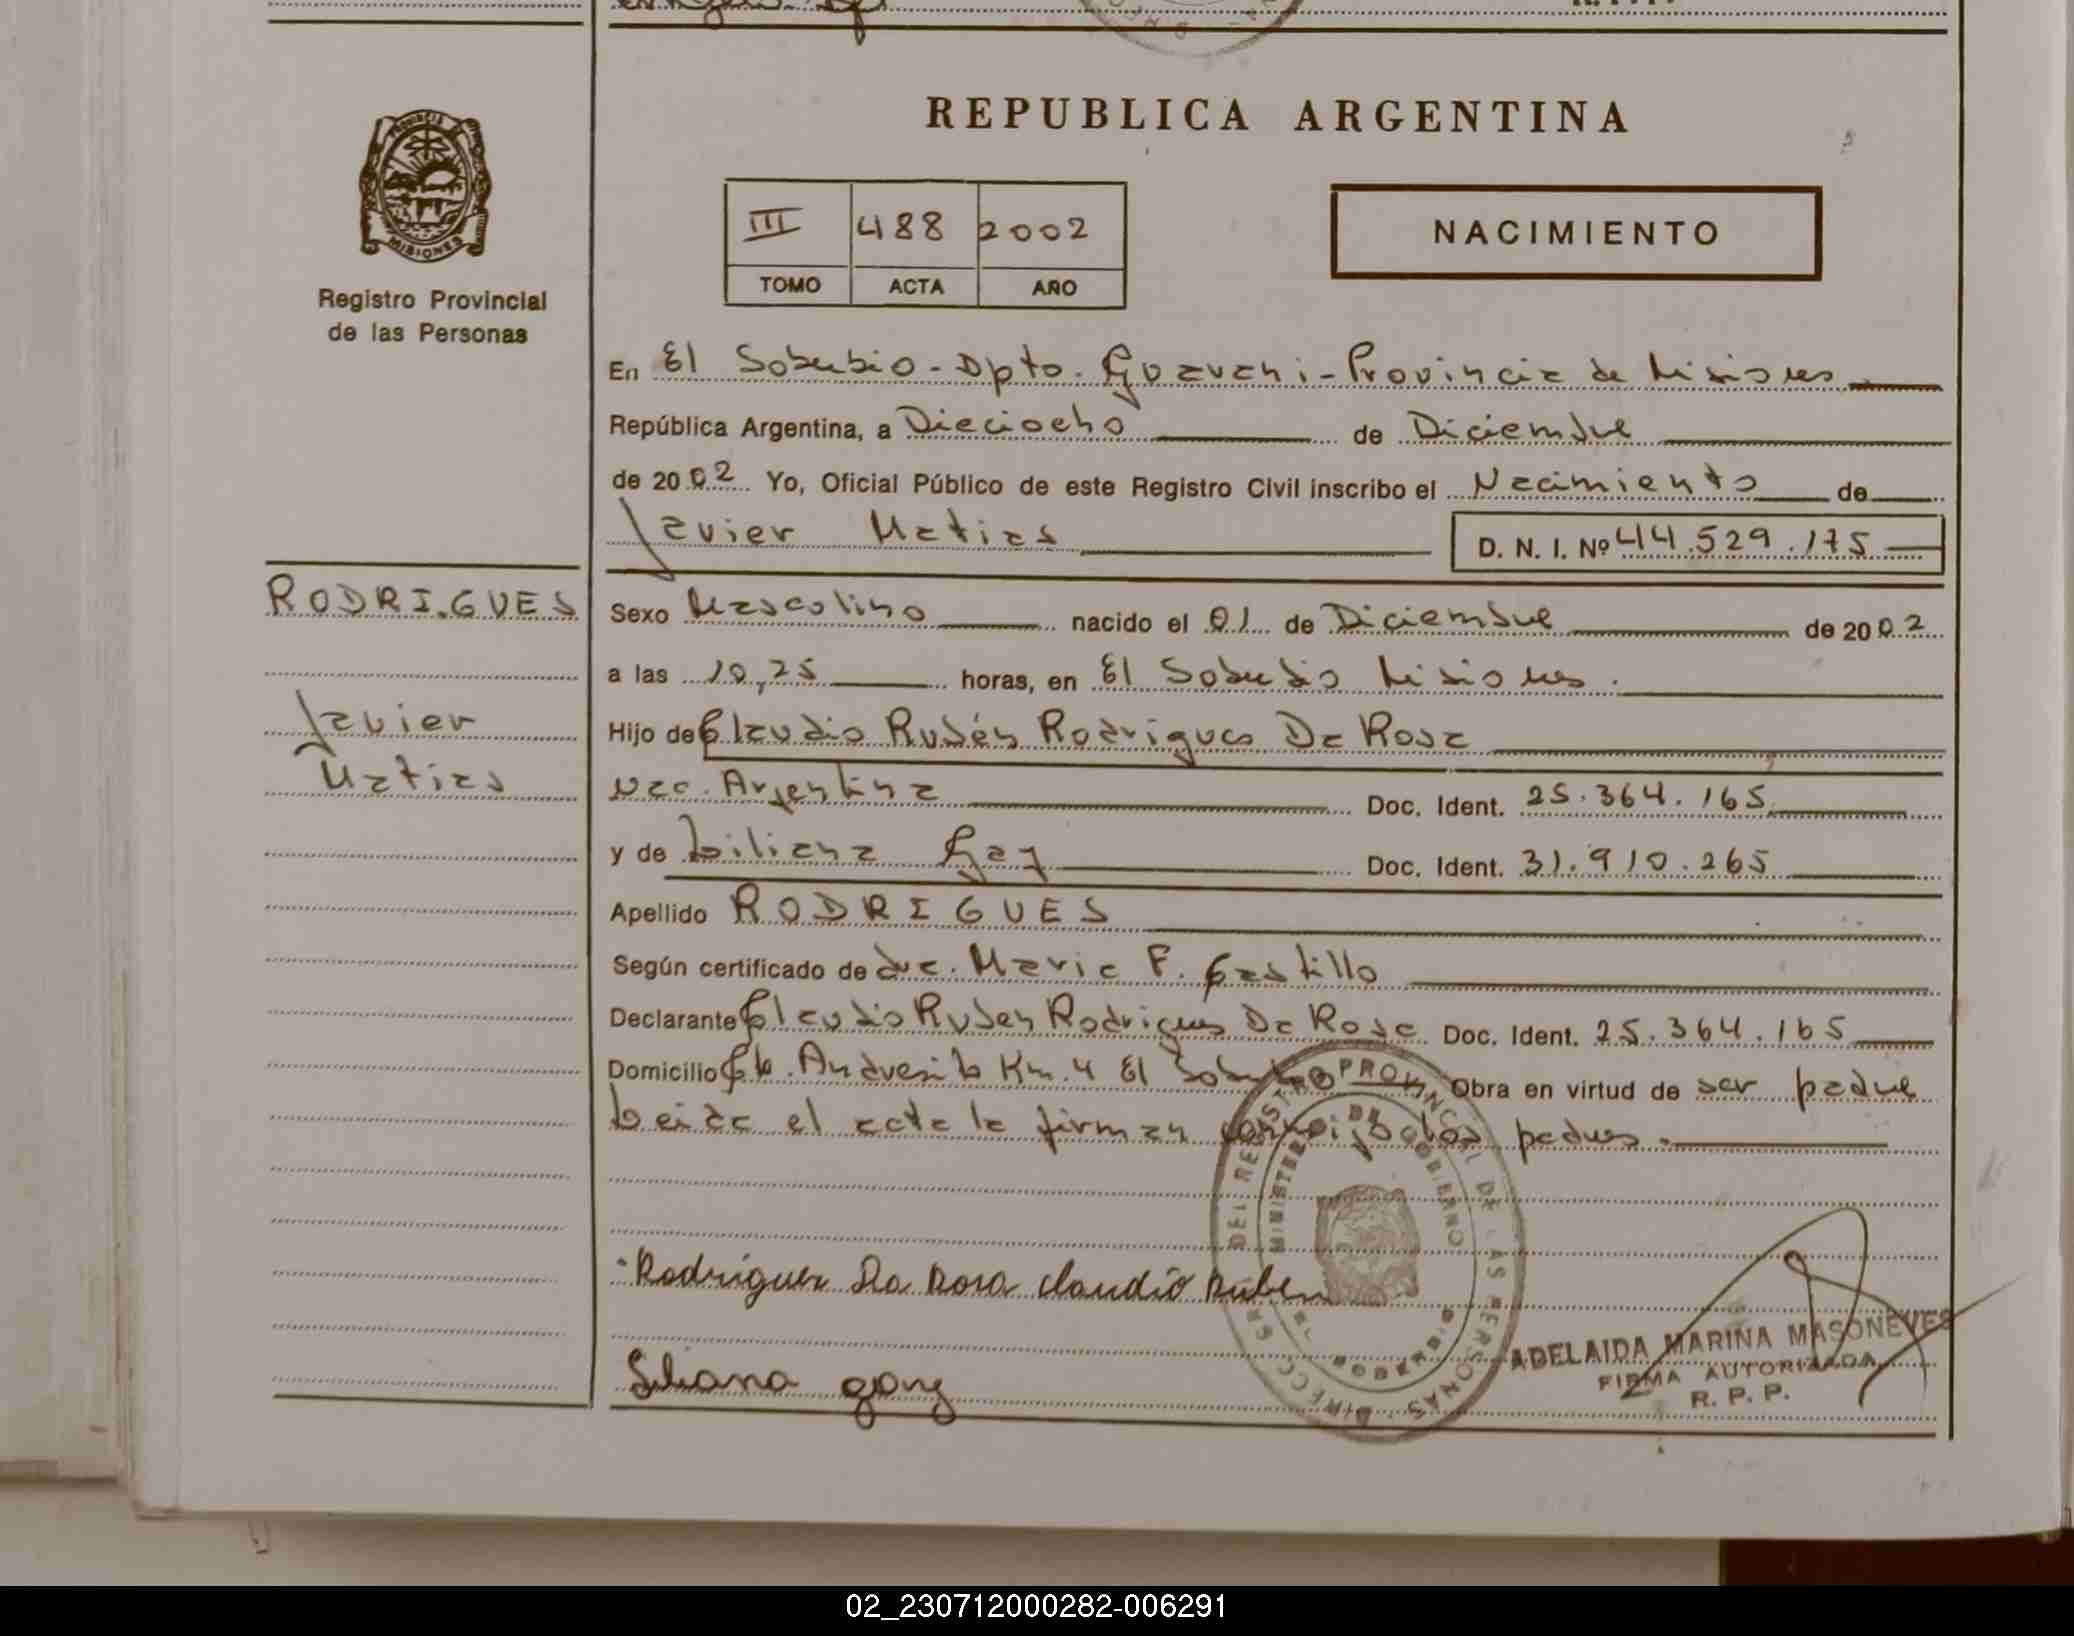 REPUBLICA ARGENTINA
PROVINCIA DE
MISIONES
Registro Provincial
de las Personas
III 488 2002
TOMO ACTA AÑO
NACIMIENTO
En El Soberbio - Dpto. Guarani - Provincia de Misiones.
República Argentina, a Dieciocho de Diciembre
de 2002 Yo, Oficial Público de este Registro Civil inscribo el Nacimiento de
Javier Matias D. N. I. Nº 44.529.175
RODRIGUES
Javier
Matias
Sexo Masculino nacido el 01 de Diciembre de 2002
a las 10,25 horas, en El Soberbio Misiones.
Hijo de Claudio Rubén Rodrigues Da Rosa
Nac. Argentina Doc. Ident. 25.364.165
y de Liliana Doc. Ident. 31.910.265
Apellido RODRIGUES
Según certificado de Maria F. Castillo
Declarante Claudio Ruben Rodrigues Da Rosa Doc. Ident. 25.364.165
Domicilio Andresito Km. 4 El Soberbio Obra en virtud de ser padre
Leida el acta la firman ambos padres.
DIRECCION DEL REGISTRO PROVINCIAL DE LAS PERSONAS
MINISTERIO DE GOBIERNO
Rodriguez Da Rosa Claudio Ruben
Liliana
ADELAIDA MARINA MASONEVES
FIRMA AUTORIZADA
R. P. P.
02_230712000282-006291